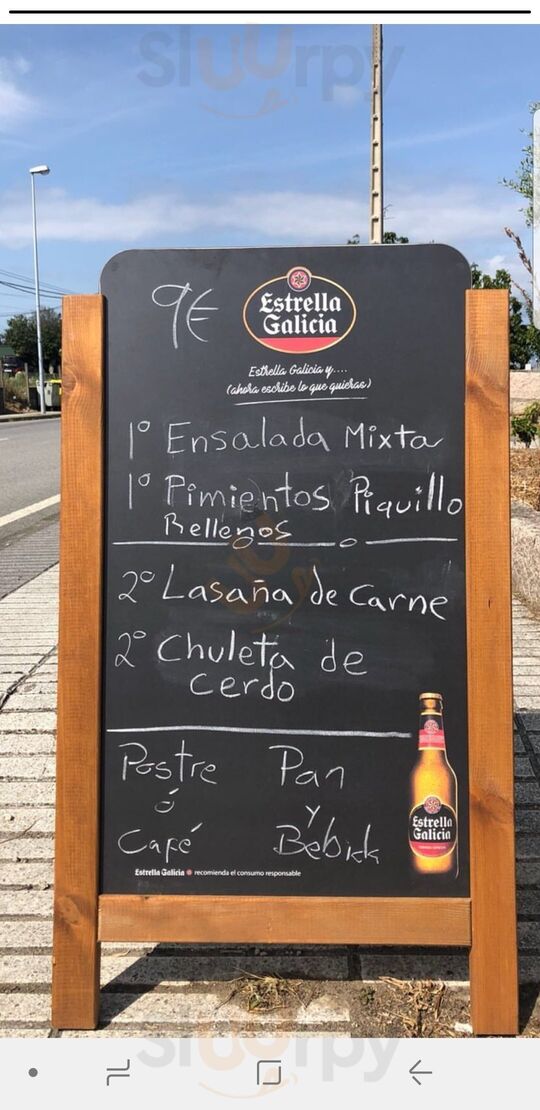 Sluurpy
9€
Estrella
Galicia
Estrella Galicia y....
(ahora escribe lo que quieras)
1º Ensalada Mixta
1º Pimientos Piquillo
Rellenos
2º Lasaña de Carne
2º Chuleta de
Cerdo
Postre Pan
ó y
Café Bebida
Estrella
Galicia
Estrella Galicia recomienda el consumo responsable
Sluurpy